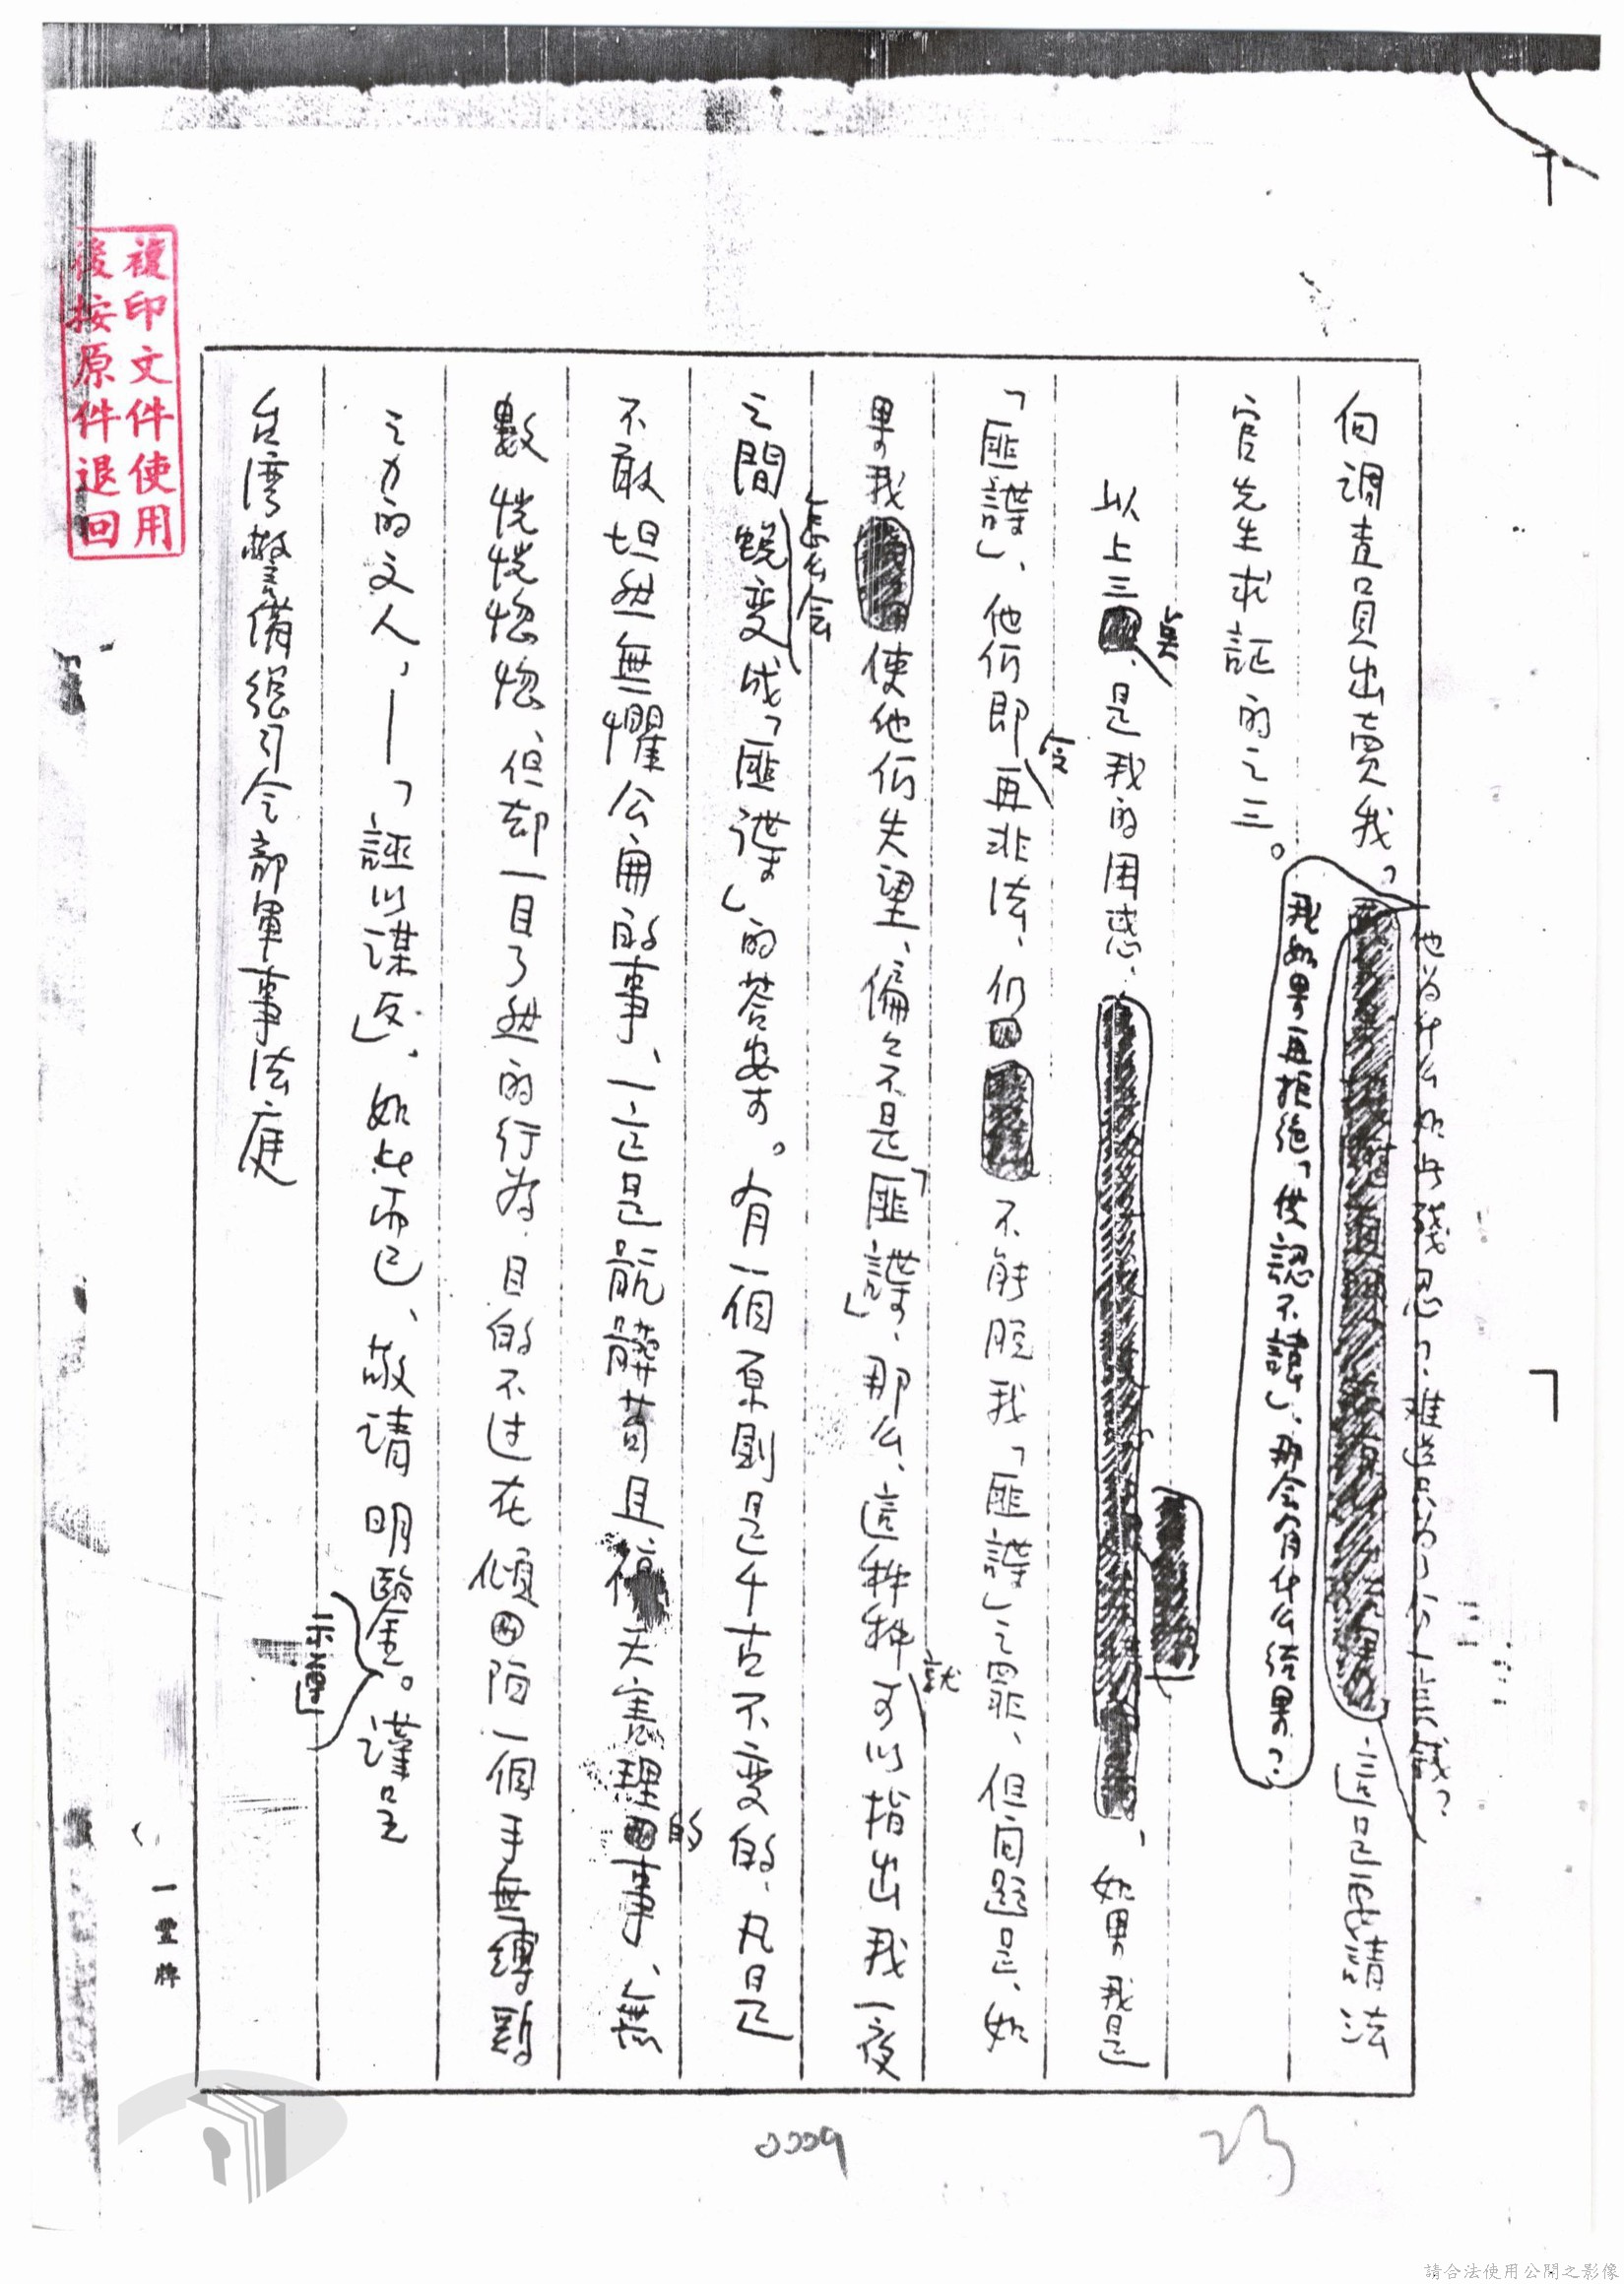 他为什么如此殘忍？难道只为了分一吳錢？
向調查員出賣我。這是要請法
我如果再拒絕「供認不諱」、那会有什么结果？
官先生求証的之三。
以上三吳、是我的困惑、如果我是
「匪諜」、他们即令再非法、仍不能脱我「匪諜」之罪、但问题是、如
果我使他们失望、偏々不是「匪諜」、那么、這种种就可以指出我一夜
之間怎么会蜕变成「匪諜」的荅案。有一個原則是千古不变的、凡是
不敢坦然無懼公開的事、一定是骯髒苟且、天害理的事、無
數恍恍惚惚、但却一目了然的行为、目的不过在傾陷一個手無縛鷄
之力的文人，—「誣以谋反」、如此而已、敬请明鑒示遵。谨呈
台湾警備總司令部軍事法庭
複印文件使用
後按原件退回
一豐牌
0009
23
請合法使用公開之影像